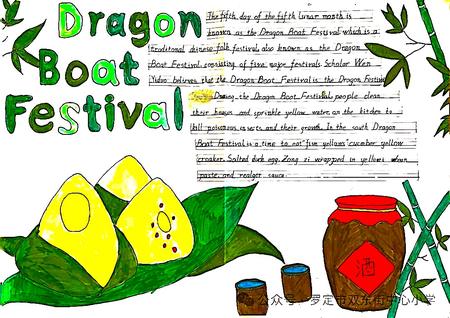 Dragon
Boat
Festival
The fifth day of the fifth lunar month is
known as the Dragon Boat Festival, which is a
traditional chinese folk festival, also known as the Dragon
Boat Festival, consisting of five major festivals. Scholar Wen
Yiduo believes that the Dragon Boat Festival is the Dragon Festival
During the Dragon Boat Festival, people clean
their houses and sprinkle yellow water on the kitchen to
kill poisonous insects and their growth. In the south Dragon
Boat Festival is a time to "not" five yellows: cucumber yellow
croaker. Salted duck egg. Zong zi wrapped in yellows
paste and realgar sauce
酒
公众号 罗定市双东街中心小学